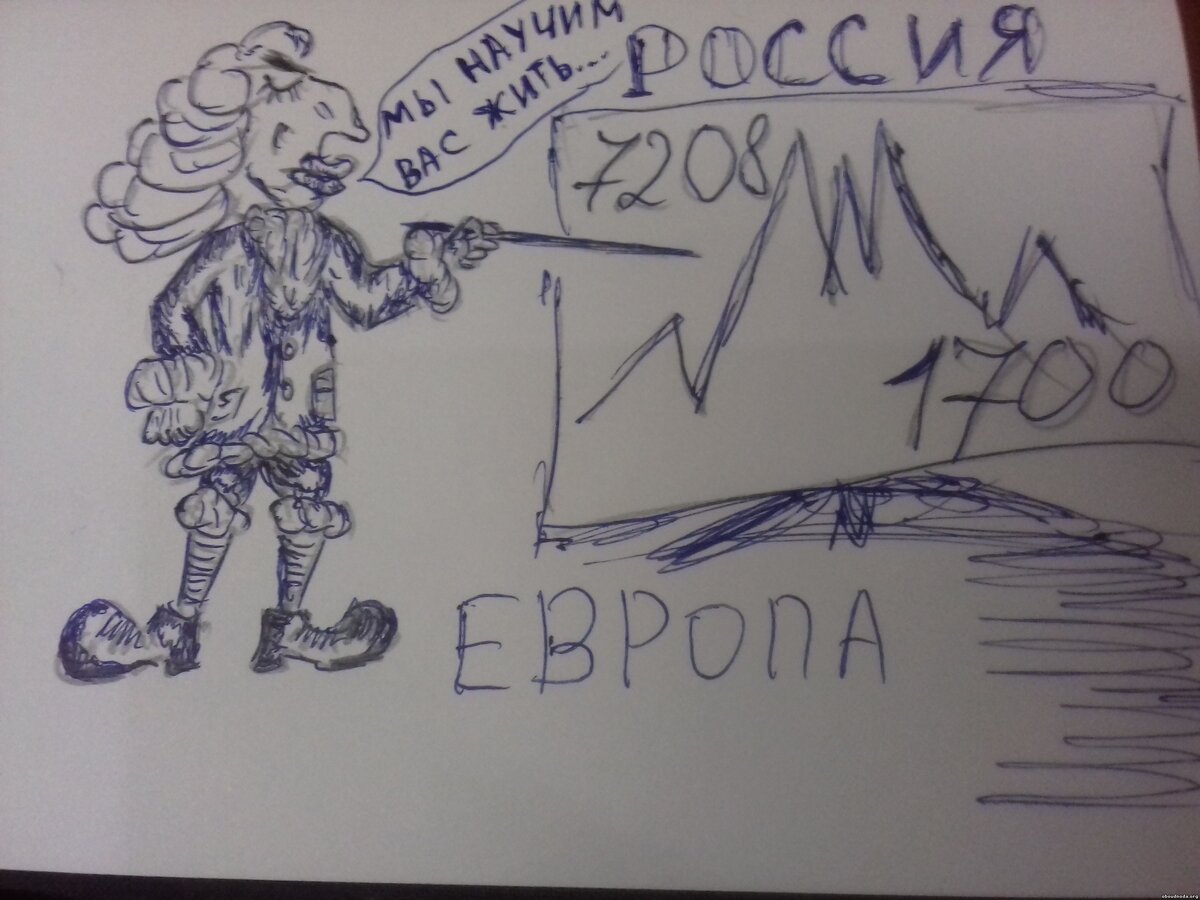 МЫ НАУЧИМ
ВАС ЖИТЬ...
РОССИЯ
7208
1700
ЕВРОПА